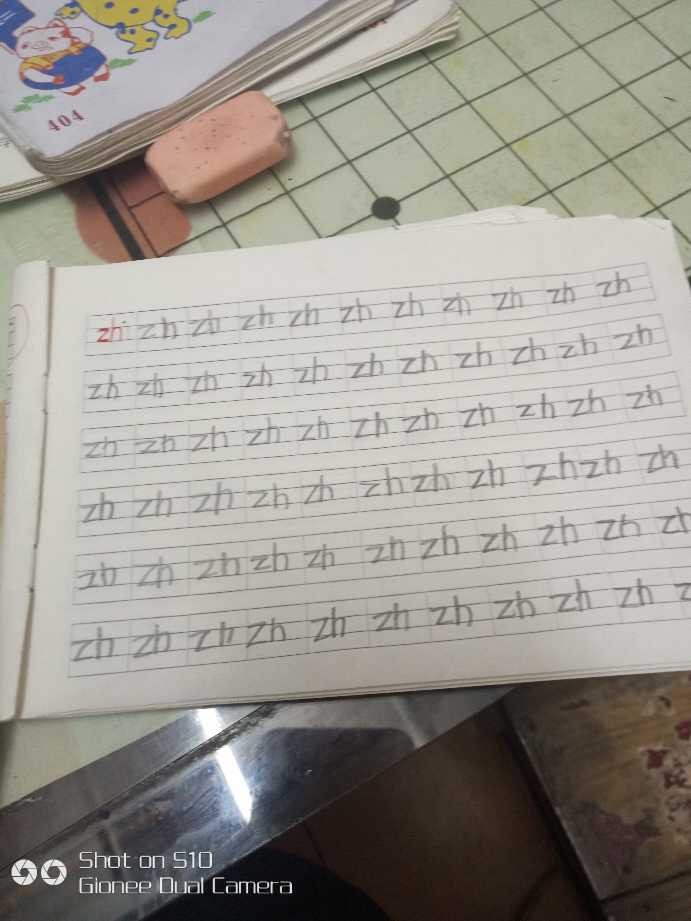 404
zh zh zh zh zh zh zh zh zh zh zh
zh zh zh zh zh zh zh zh zh zh zh
zh zh zh zh zh zh zh zh zh zh zh
zh zh zh zh zh zh zh zh zh zh zh
zh zh zh zh zh zh zh zh zh zh zh
zh zh zh zh zh zh zh zh zh zh z
Shot on S10
Gionee Dual Camera